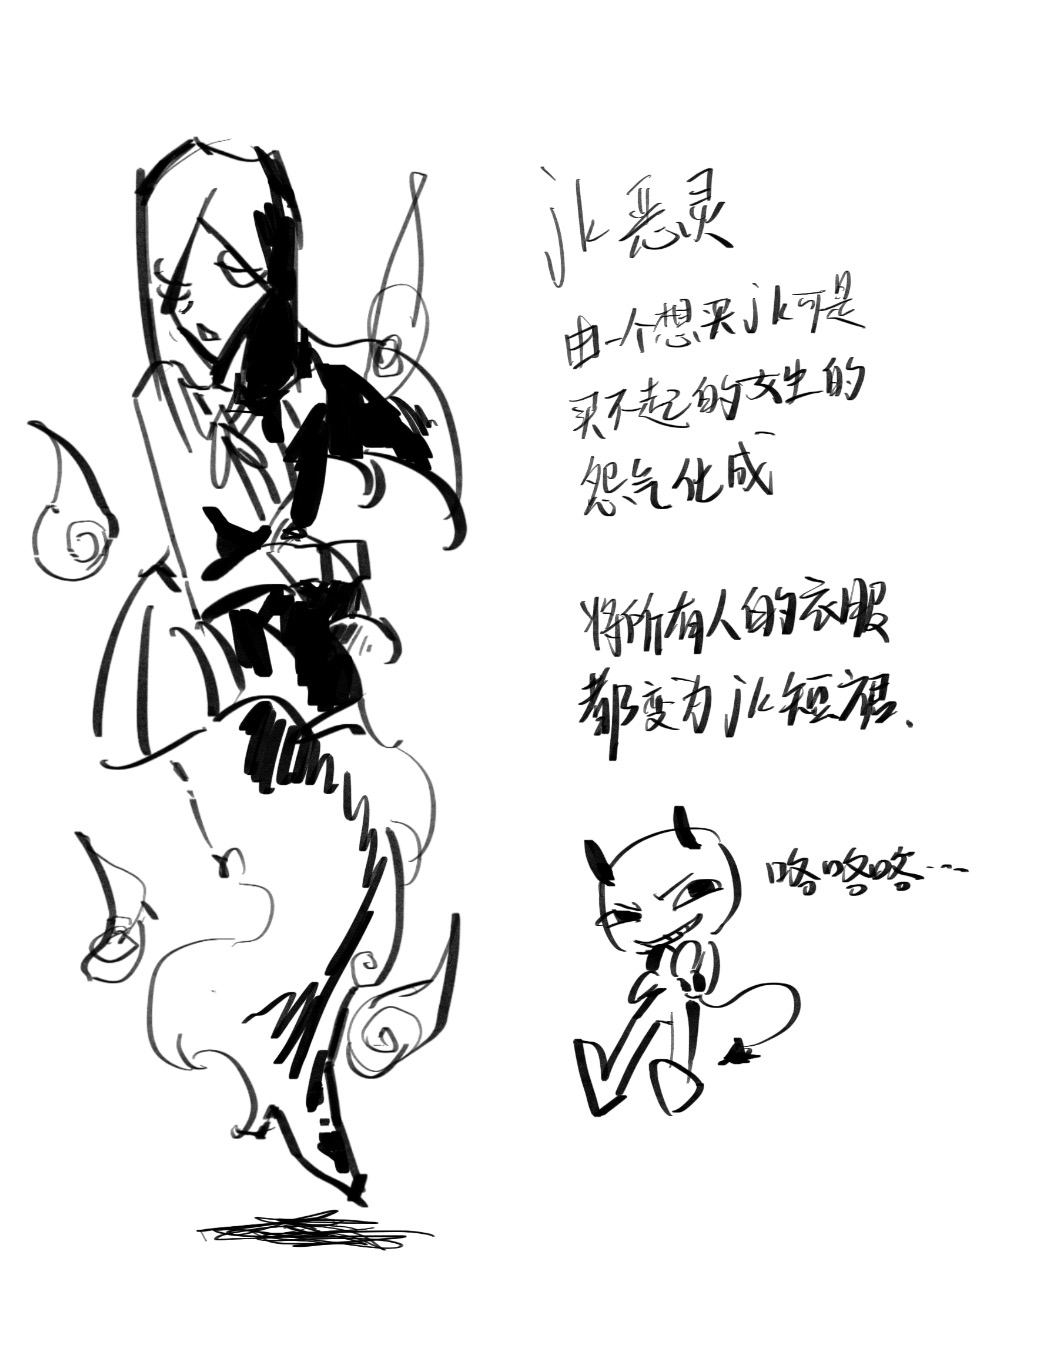 jk恶灵
由一个想买jk可是
买不起的女生的
怨气化成
将所有人的衣服
都变为jk短裙.
咯咯咯……